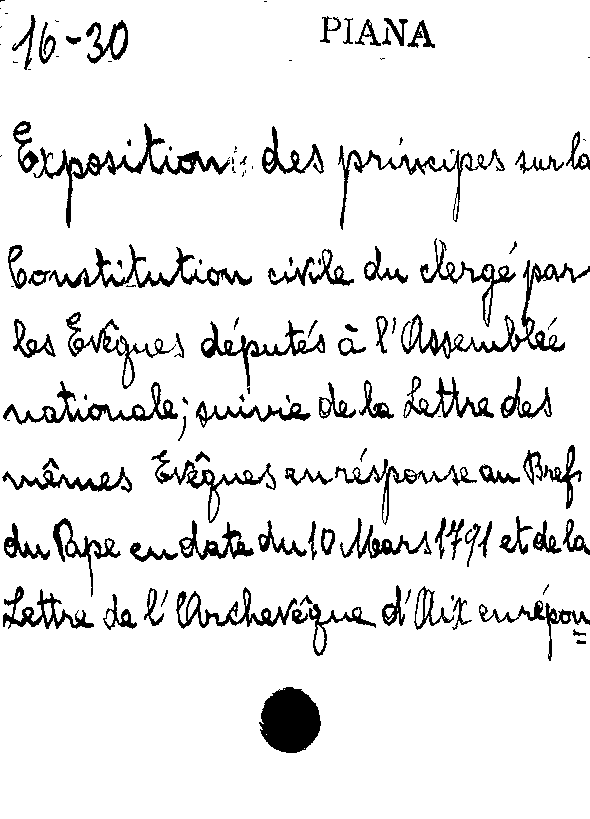 16-30 PIANA
Exposition des principes sur la
Constitution civile du clergé par
les Evêques députés à l'Assemblée
nationale; suivie de la Lettre des
mêmes Evêques en résponse au Bref
du Pape en date du 10 Mars 1791 et de la
Lettre de l'Archevêque d'Aix en répon